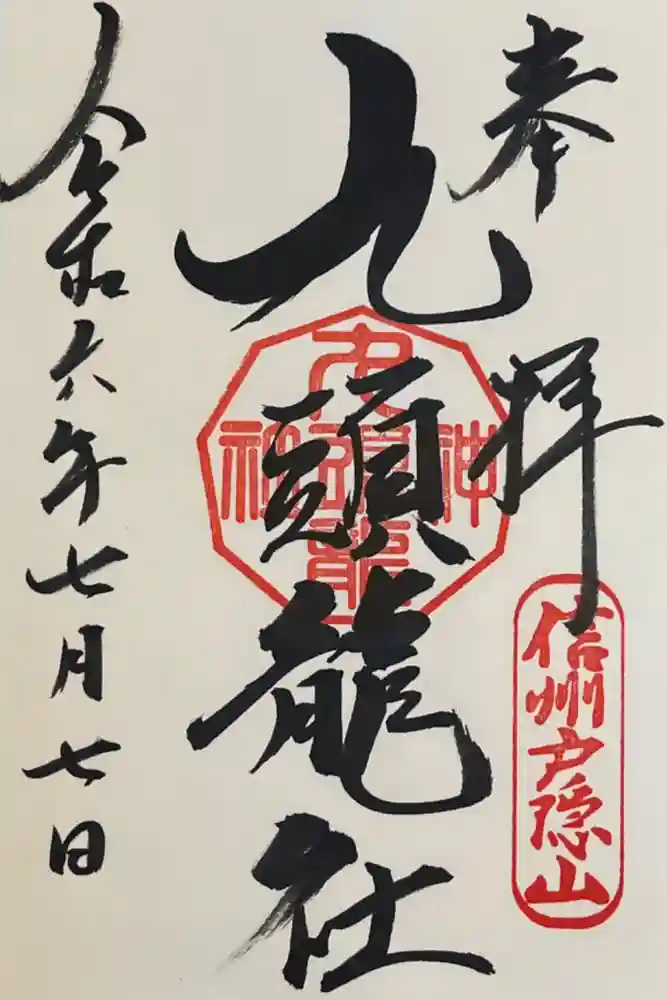 奉拝
信州戸隠山
九頭龍社
九頭龍神社
令和六年七月七日